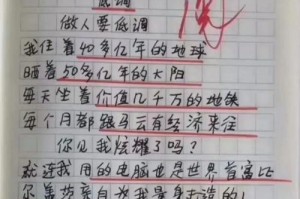 低调
做人要低调
我住着40多亿年的地球
晒着50多亿年的太阳
每天坐着价值几千万的地铁
每个月都跟马云有经济来往
你见我炫耀了吗?
就连我用的电脑也是世界首富比
尔盖茨亲自为我量身打造的!